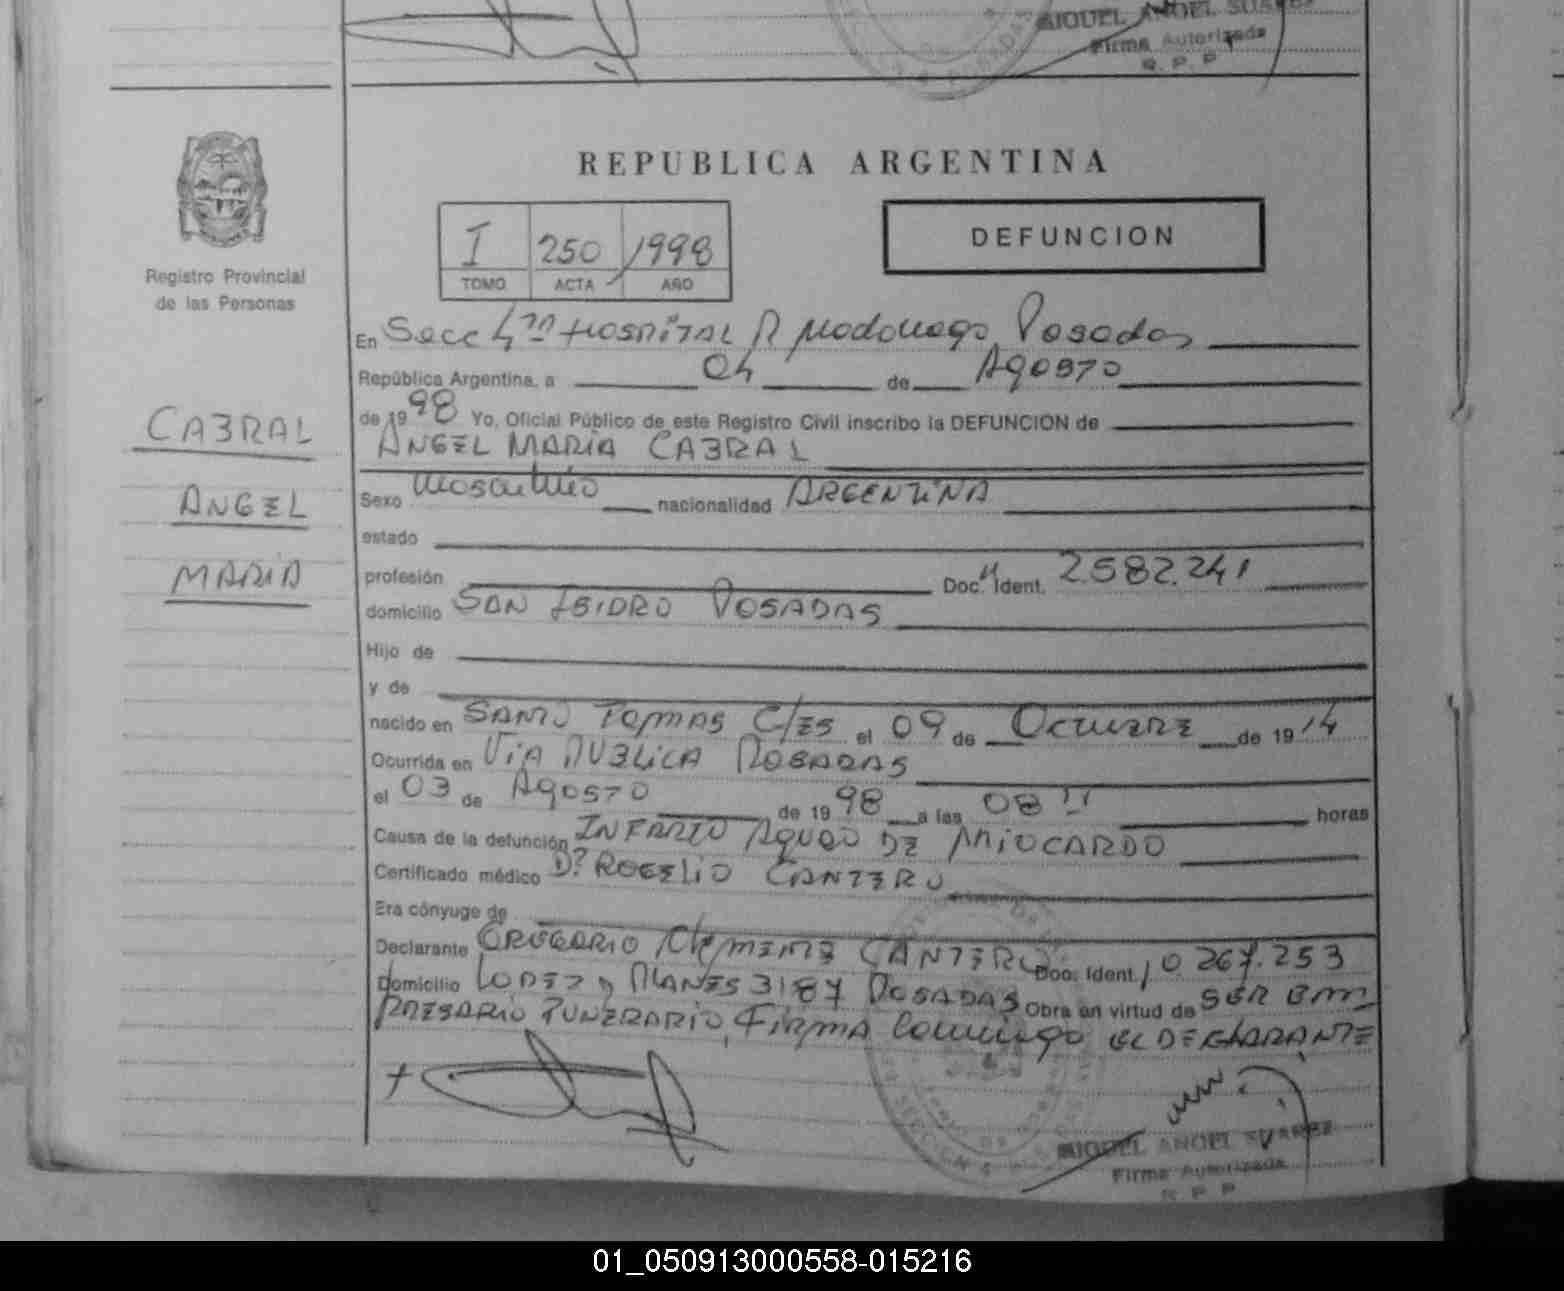 MIGUEL ANGEL SUAREZ
Firma Autorizada
R. P. P.
REPUBLICA ARGENTINA
I 250 1998
TOMO ACTA AÑO
DEFUNCION
Registro Provincial
de las Personas
CABRAL
ANGEL
MARIA
En Secc 4ta Hospital R Madariaga Posadas
República Argentina, a 04 de Agosto
de 1998 Yo, Oficial Público de este Registro Civil inscribo la DEFUNCION de
ANGEL MARIA CABRAL
Sexo Masculino nacionalidad ARGENTINA
estado
profesión Doc. Ident. 2.582.241
domicilio SAN ISIDRO POSADAS
Hijo de
y de
nacido en SANTO TOMAS C/ES el 09 de OCTUBRE de 1914
Ocurrida en VIA PUBLICA POSADAS
el 03 de Agosto de 1998 a las 08 horas
Causa de la defunción INFARTO AGUDO DE MIOCARDO
Certificado médico Dr ROGELIO CANTERO
Era cónyuge de
Declarante GREGORIO Clemente CANTERO Doc. Ident. 10.267.253
Domicilio LOPEZ y PLANES 3187 POSADAS Obra en virtud de SER EM
PRESARIO FUNERARIO, FIRMA Conmigo EL DECLARANTE
MIGUEL ANGEL SUAREZ
Firma Autorizada
R. P. P.
01_050913000558-015216